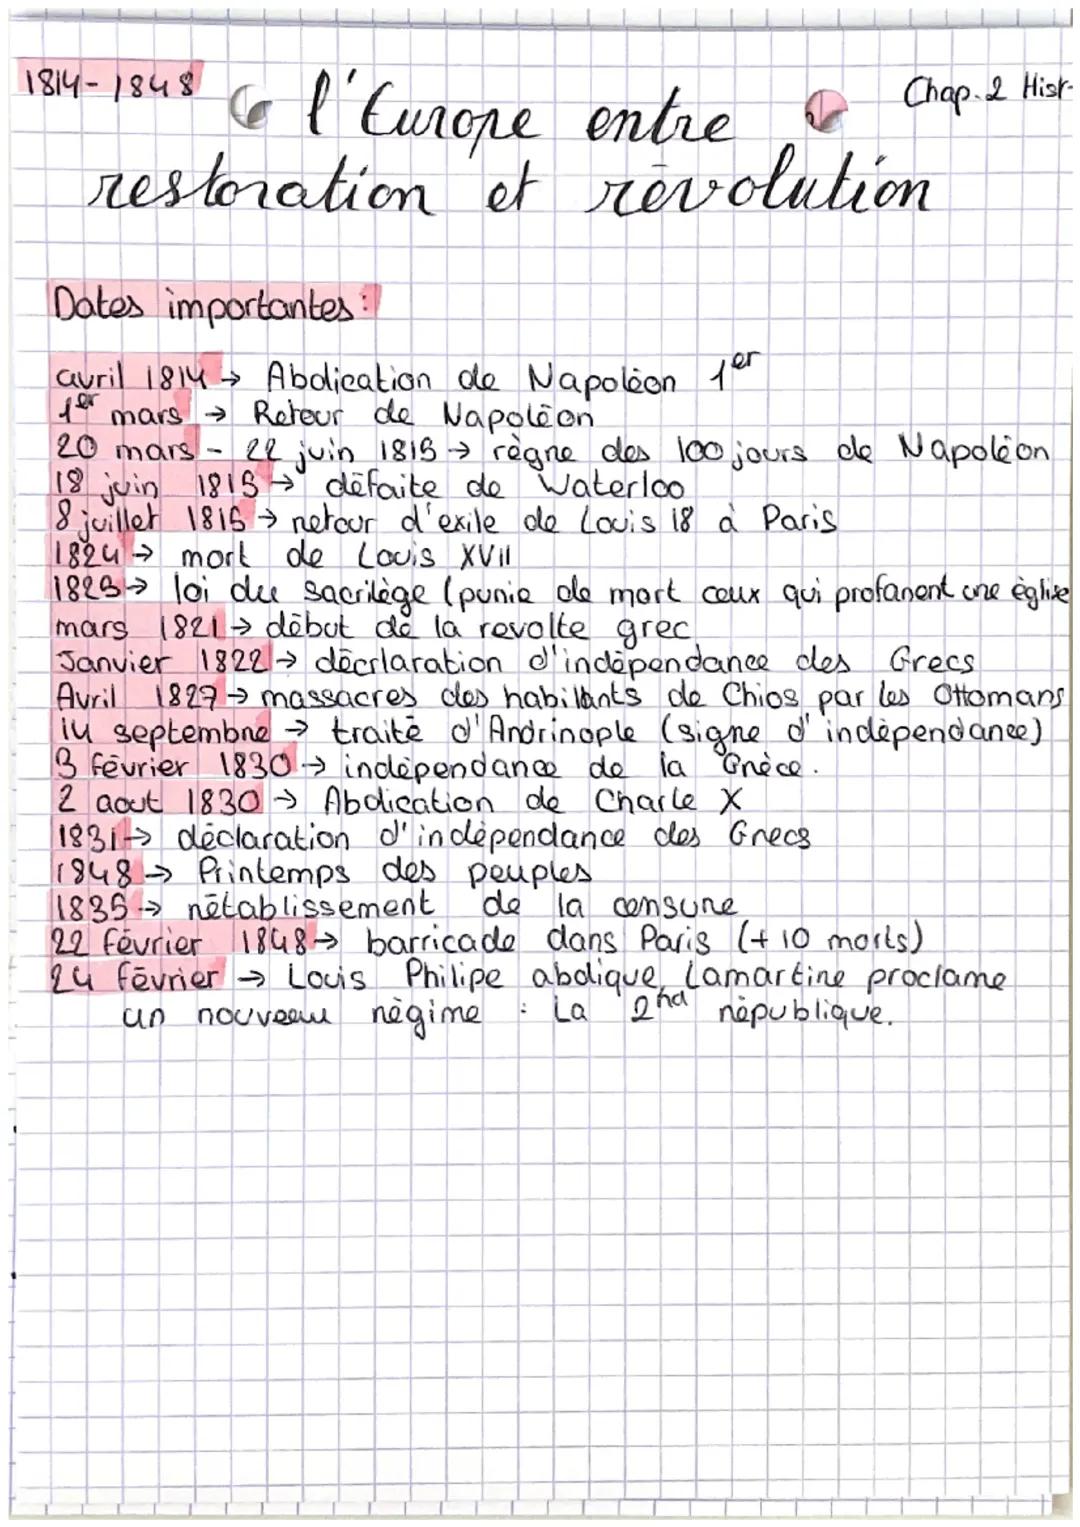 1814-1848
Chap.2 Hist-
l'Europe entre
restoration et révolution
Dates importantes :
avril 1814 → Abdication de Napoléon 1er
1er mars → Retour de Napoléon
20 mars - 22 juin 1815 → règne des 100 jours de Napoléon
18 juin 1815 → défaite de Waterloo
8 juillet 1815 → retour d'exile de Louis 18 à Paris
1824 → mort de Louis XVII
1825 → loi du sacrilège (punie de mort ceux qui profanent une église
mars 1821 → début de la revolte grec
Janvier 1822 → décrlaration d'indépendance des Grecs
Avril 1827 → massacres des habitants de Chios par les Ottomans
14 septembre → traité d'Andrinople (signe d'indépendance)
3 février 1830 → indépendance de la Grèce.
2 aout 1830 → Abdication de Charle X
1831 → déclaration d'indépendance des Grecs
1848 → Printemps des peuples
1835 → rétablissement de la censure
22 février 1848 → barricade dans Paris (+ 10 morts)
24 février → Louis Philipe abdique, Lamartine proclame
un nouveau régime : La 2nd république.